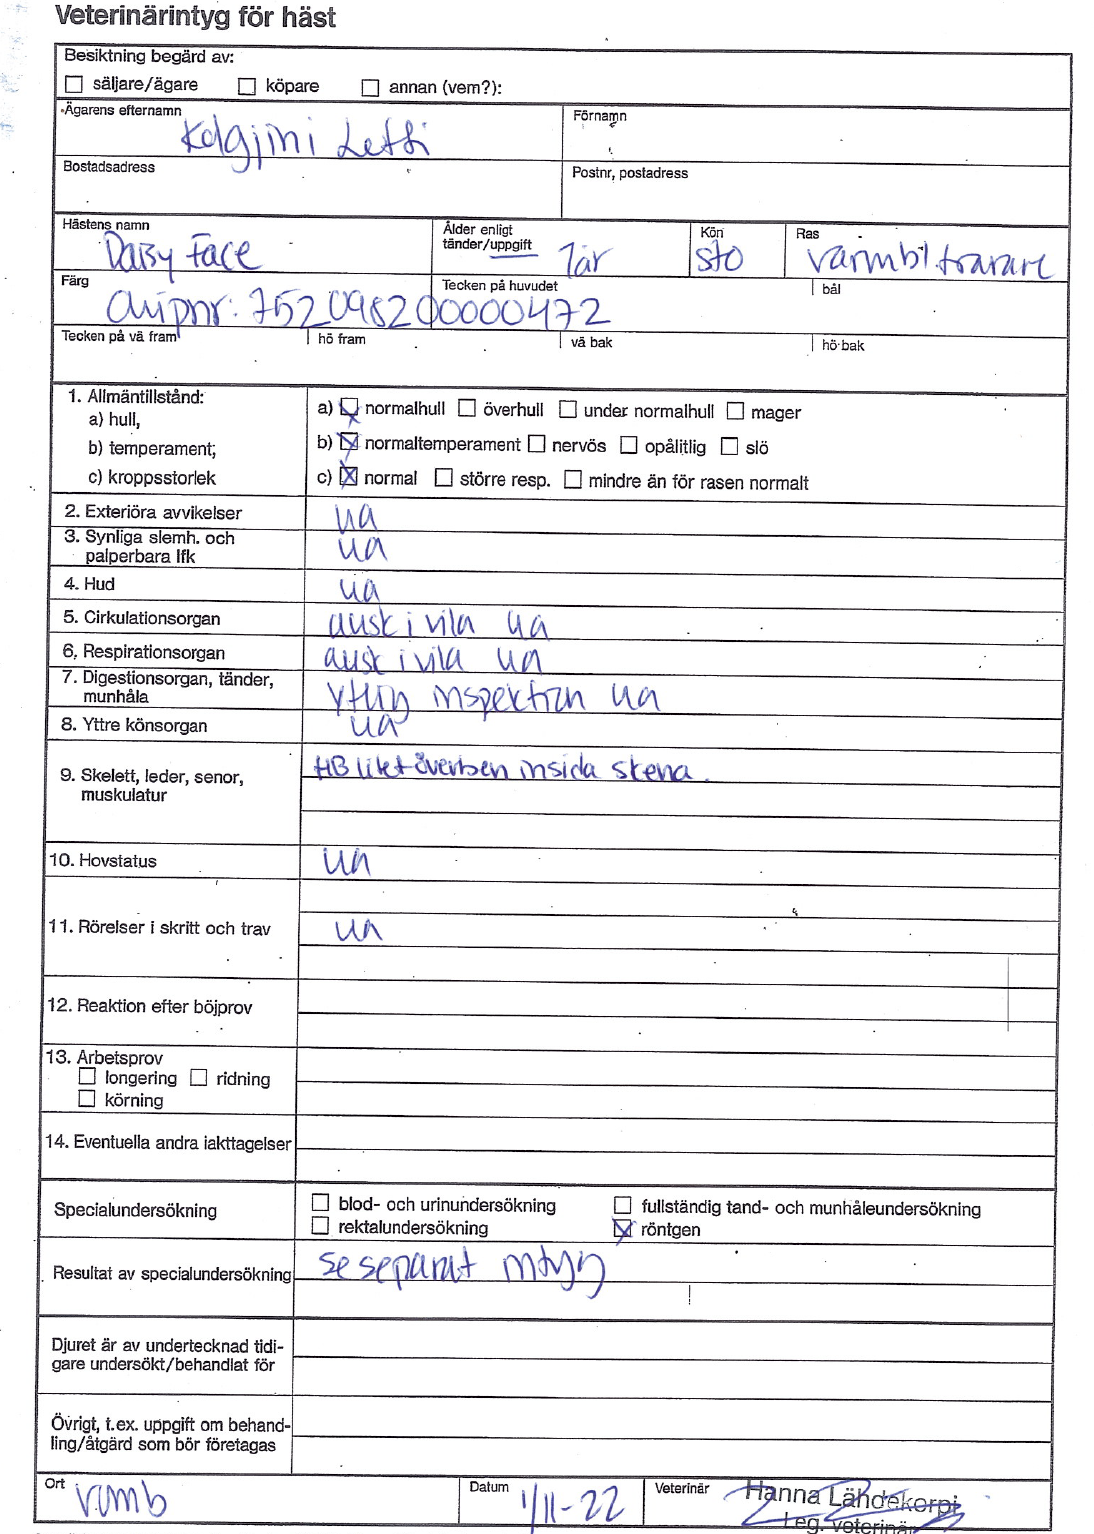 Veterinärintyg för häst
Besiktning begärd av:
säljare/ägare köpare annan (vem?):
Ägarens efternamn Förnamn
Bostadsadress Postnr, postadress
Hästens namn Daisy Face
Ålder enligt tänder/uppgift 1 år
Kön sto
Ras varmbl. travare
Färg Tecken på huvudet bål
chipnr: 752098200000472
Tecken på vä fram hö fram vä bak hö bak
1. Allmäntillstånd:
a) hull, a) normalhull överhull under normalhull mager
b) temperament; b) normaltemperament nervös opålitlig slö
c) kroppsstorlek c) normal större resp. mindre än för rasen normalt
2. Exteriöra avvikelser ua
3. Synliga slemh. och
palperbara lfk ua
4. Hud ua
5. Cirkulationsorgan ausk i vila ua
6. Respirationsorgan ausk i vila ua
7. Digestionsorgan, tänder,
munhåla ytlig inspektion ua
8. Yttre könsorgan ua
9. Skelett, leder, senor,
muskulatur
HB litet överben insida skena.
10. Hovstatus ua
11. Rörelser i skritt och trav ua
12. Reaktion efter böjprov
13. Arbetsprov
longering ridning
körning
14. Eventuella andra iakttagelser
Specialundersökning
blod- och urinundersökning fullständig tand- och munhåleundersökning
rektalundersökning röntgen
Resultat av specialundersökning se separat intyg
Djuret är av undertecknad tidi-
gare undersökt/behandlat för
Övrigt, t.ex. uppgift om behand-
ling/åtgärd som bör företagas
Ort Datum 1/11-22 Veterinär Hanna Lähdekorpi
Leg. veterinär